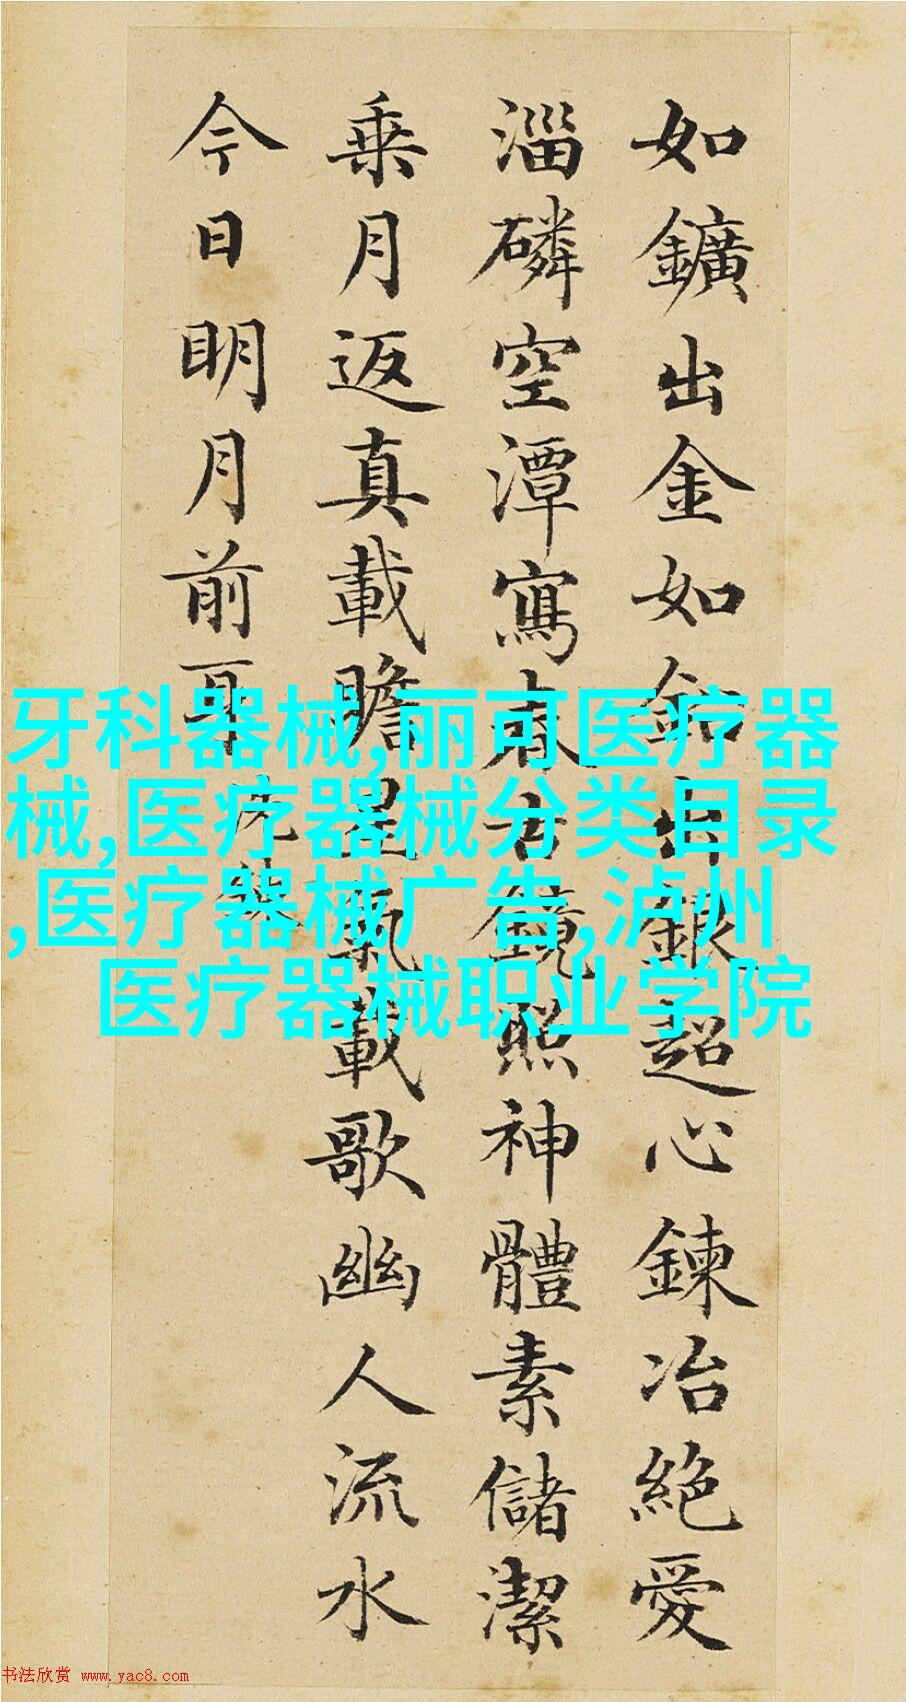 如鑛出金如鉛出銀超心鍊冶絕愛
淄磷空潭寫春古鏡照神體素儲潔
乗月返真載瞻星氣載歌幽人流水
今日明月前
牙科器械,丽可医疗器
械,医疗器械分类目录
,医疗器械广告,泸州
医疗器械职业学院
书法欣赏 www.yac8.com